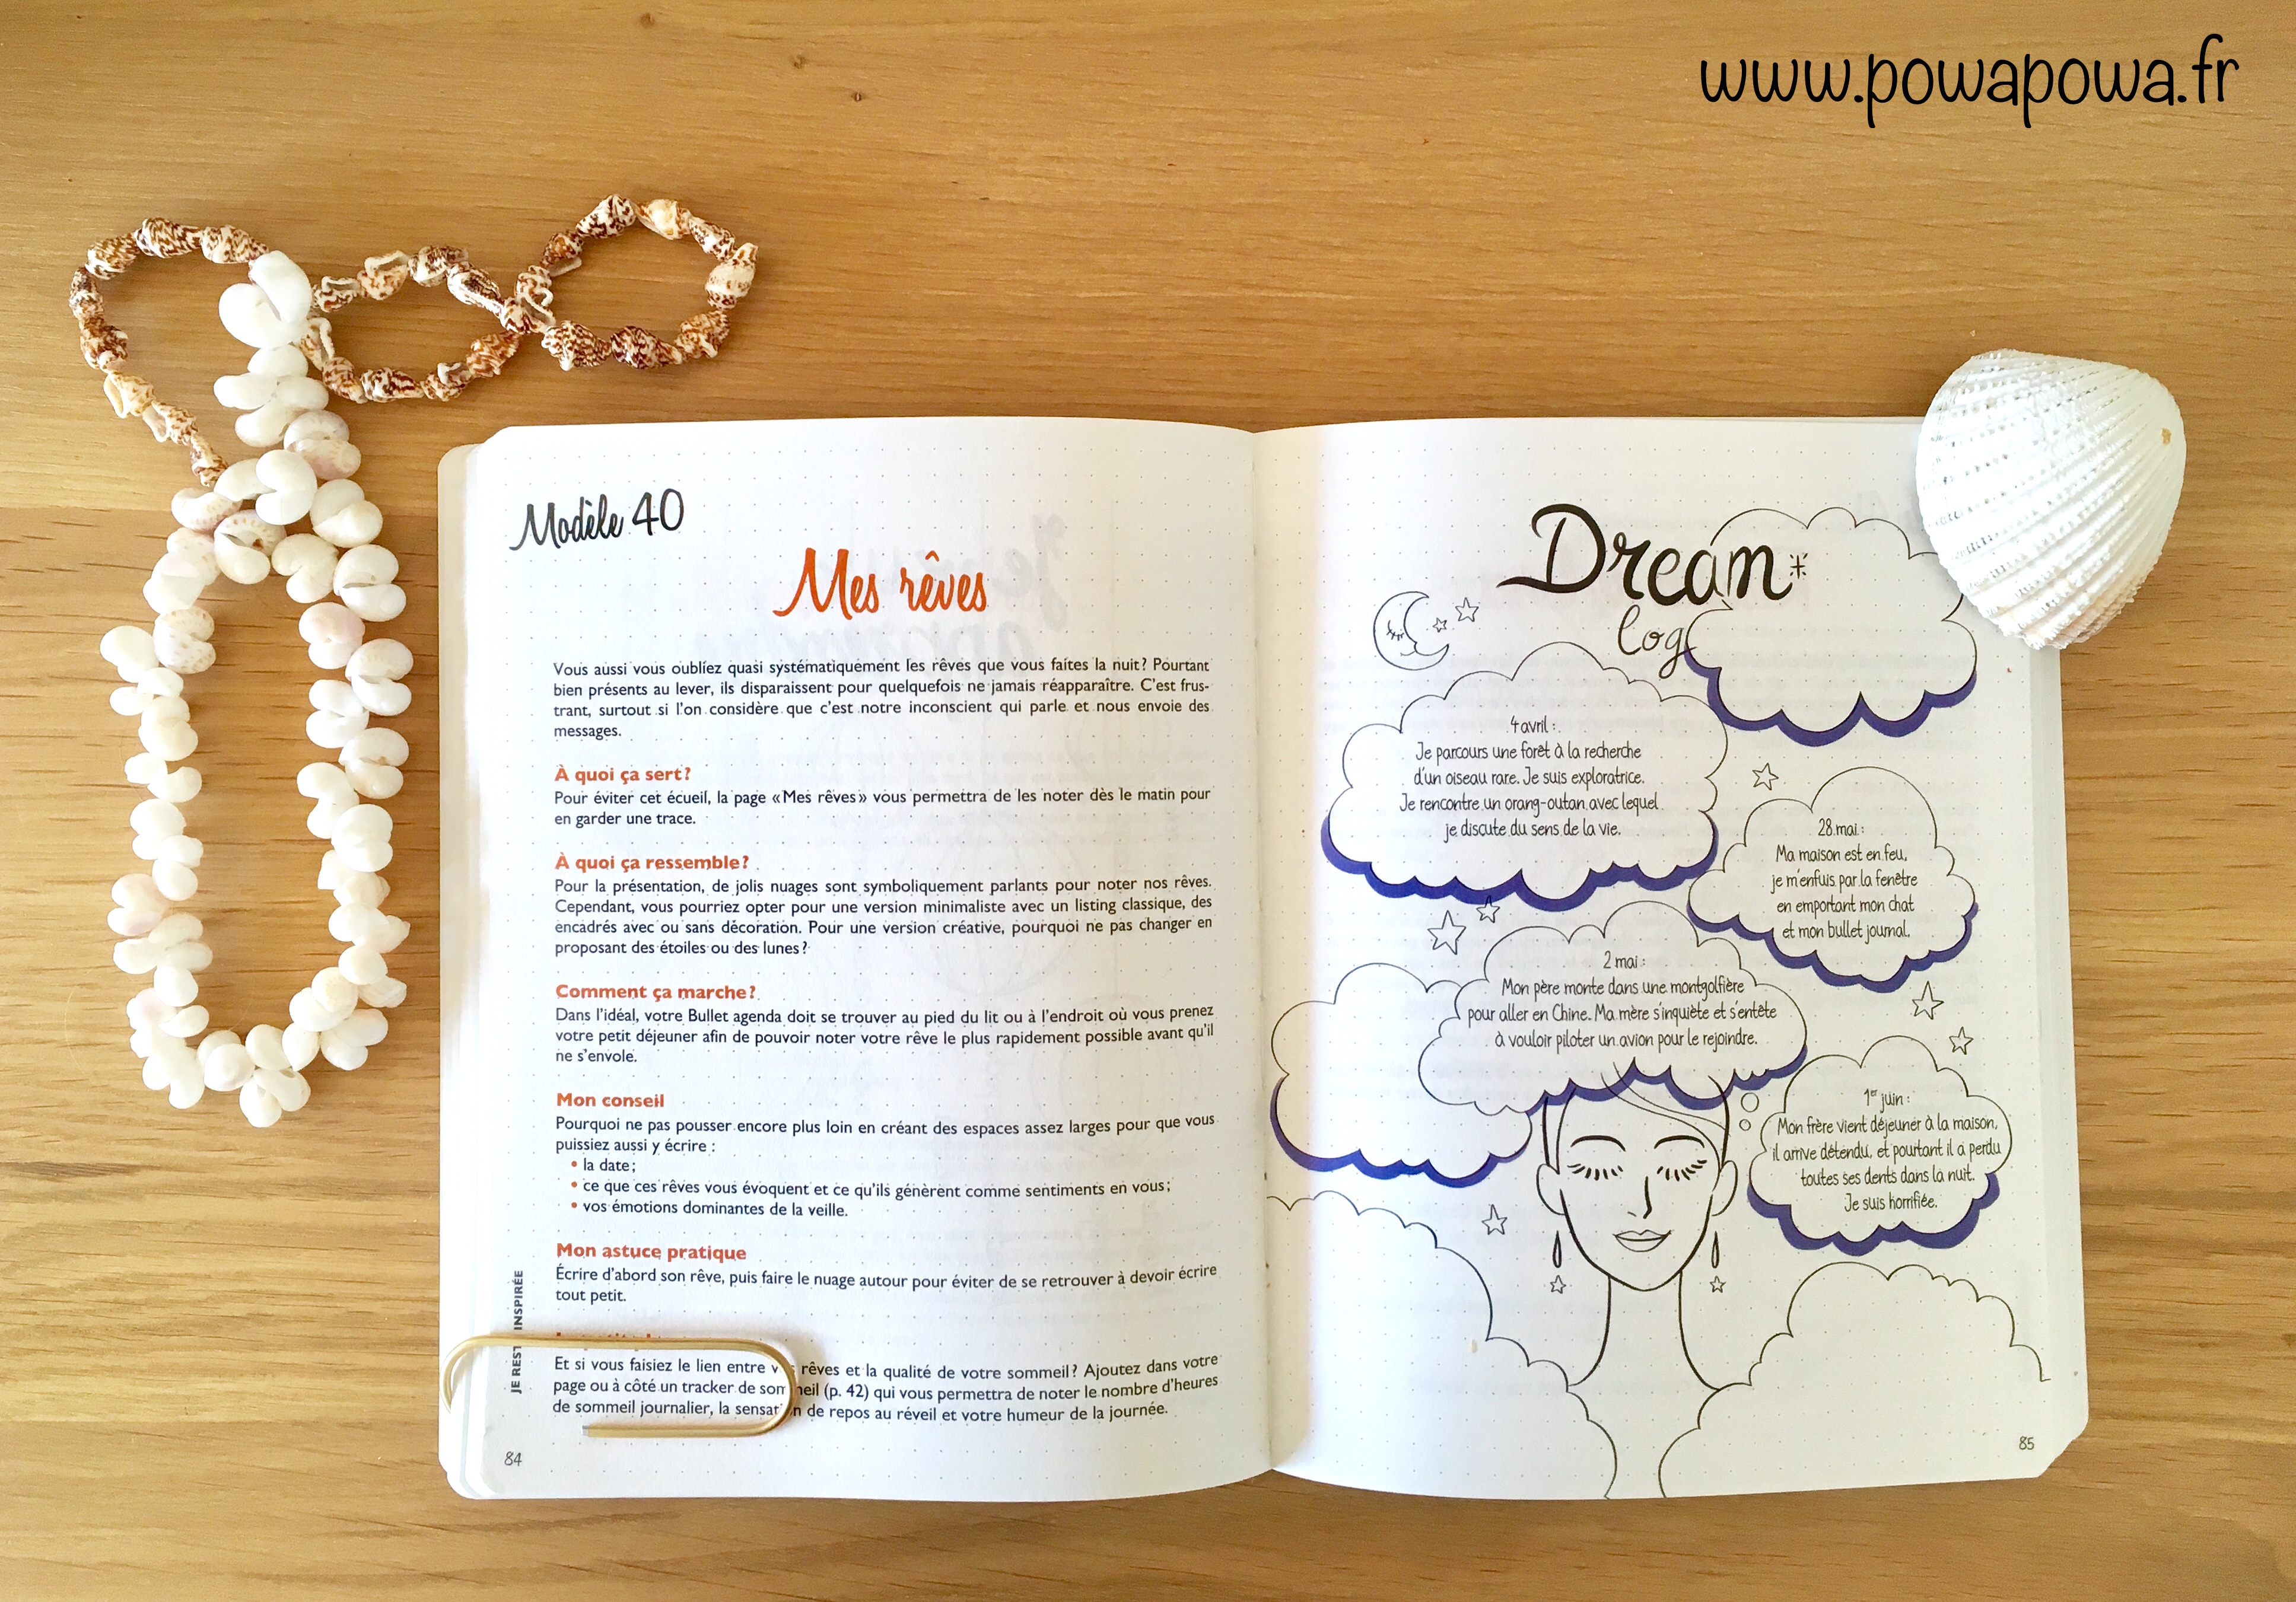 www.powapowa.fr
Modèle 40
Mes rêves
Vous aussi vous oubliez quasi systématiquement les rêves que vous faites la nuit? Pourtant
bien présents au lever, ils disparaissent pour quelquefois ne jamais réapparaître. C'est frus-
trant, surtout si l'on considère que c'est notre inconscient qui parle et nous envoie des
messages.
À quoi ça sert?
Pour éviter cet écueil, la page «Mes rêves» vous permettra de les noter dès le matin pour
en garder une trace.
À quoi ça ressemble?
Pour la présentation, de jolis nuages sont symboliquement parlants pour noter nos rêves.
Cependant, vous pourriez opter pour une version minimaliste avec un listing classique, des
encadrés avec ou sans décoration. Pour une version créative, pourquoi ne pas changer en
proposant des étoiles ou des lunes?
Comment ça marche?
Dans l'idéal, votre Bullet agenda doit se trouver au pied du lit ou à l'endroit où vous prenez
votre petit déjeuner afin de pouvoir noter votre rêve le plus rapidement possible avant qu'il
ne s'envole.
Mon conseil
Pourquoi ne pas pousser encore plus loin en créant des espaces assez larges pour que vous
puissiez aussi y écrire :
• la date;
• ce que ces rêves vous évoquent et ce qu'ils génèrent comme sentiments en vous;
• vos émotions dominantes de la veille.
Mon astuce pratique
Écrire d'abord son rêve, puis faire le nuage autour pour éviter de se retrouver à devoir écrire
tout petit.
Et si vous faisiez le lien entre rêves et la qualité de votre sommeil? Ajoutez dans votre
page ou à côté un tracker de (p. 42) qui vous permettra de noter le nombre d'heures
de sommeil journalier, la de repos au réveil et votre humeur de la journée.
JE INSPIRÉE
84
Dream
log
4 avril :
Je parcours une forêt à la recherche
d'un oiseau rare. Je suis exploratrice.
Je rencontre un orang-outan avec lequel
je discute du sens de la vie.
28 mai :
Ma maison est en feu,
je m'enfuis par la fenêtre
en emportant mon chat
et mon bullet journal.
2 mai :
Mon père monte dans une montgolfière
pour aller en Chine. Ma mère s'inquiète et s'entête
à vouloir piloter un avion pour le rejoindre.
1er juin :
Mon frère vient déjeuner à la maison,
il arrive détendu, et pourtant il a perdu
toutes ses dents dans la nuit.
Je suis horrifiée.
85